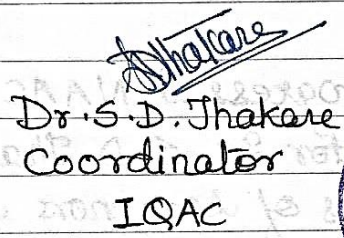 SDThakare
Dr.S.D.Thakare
Coordinator
IQAC